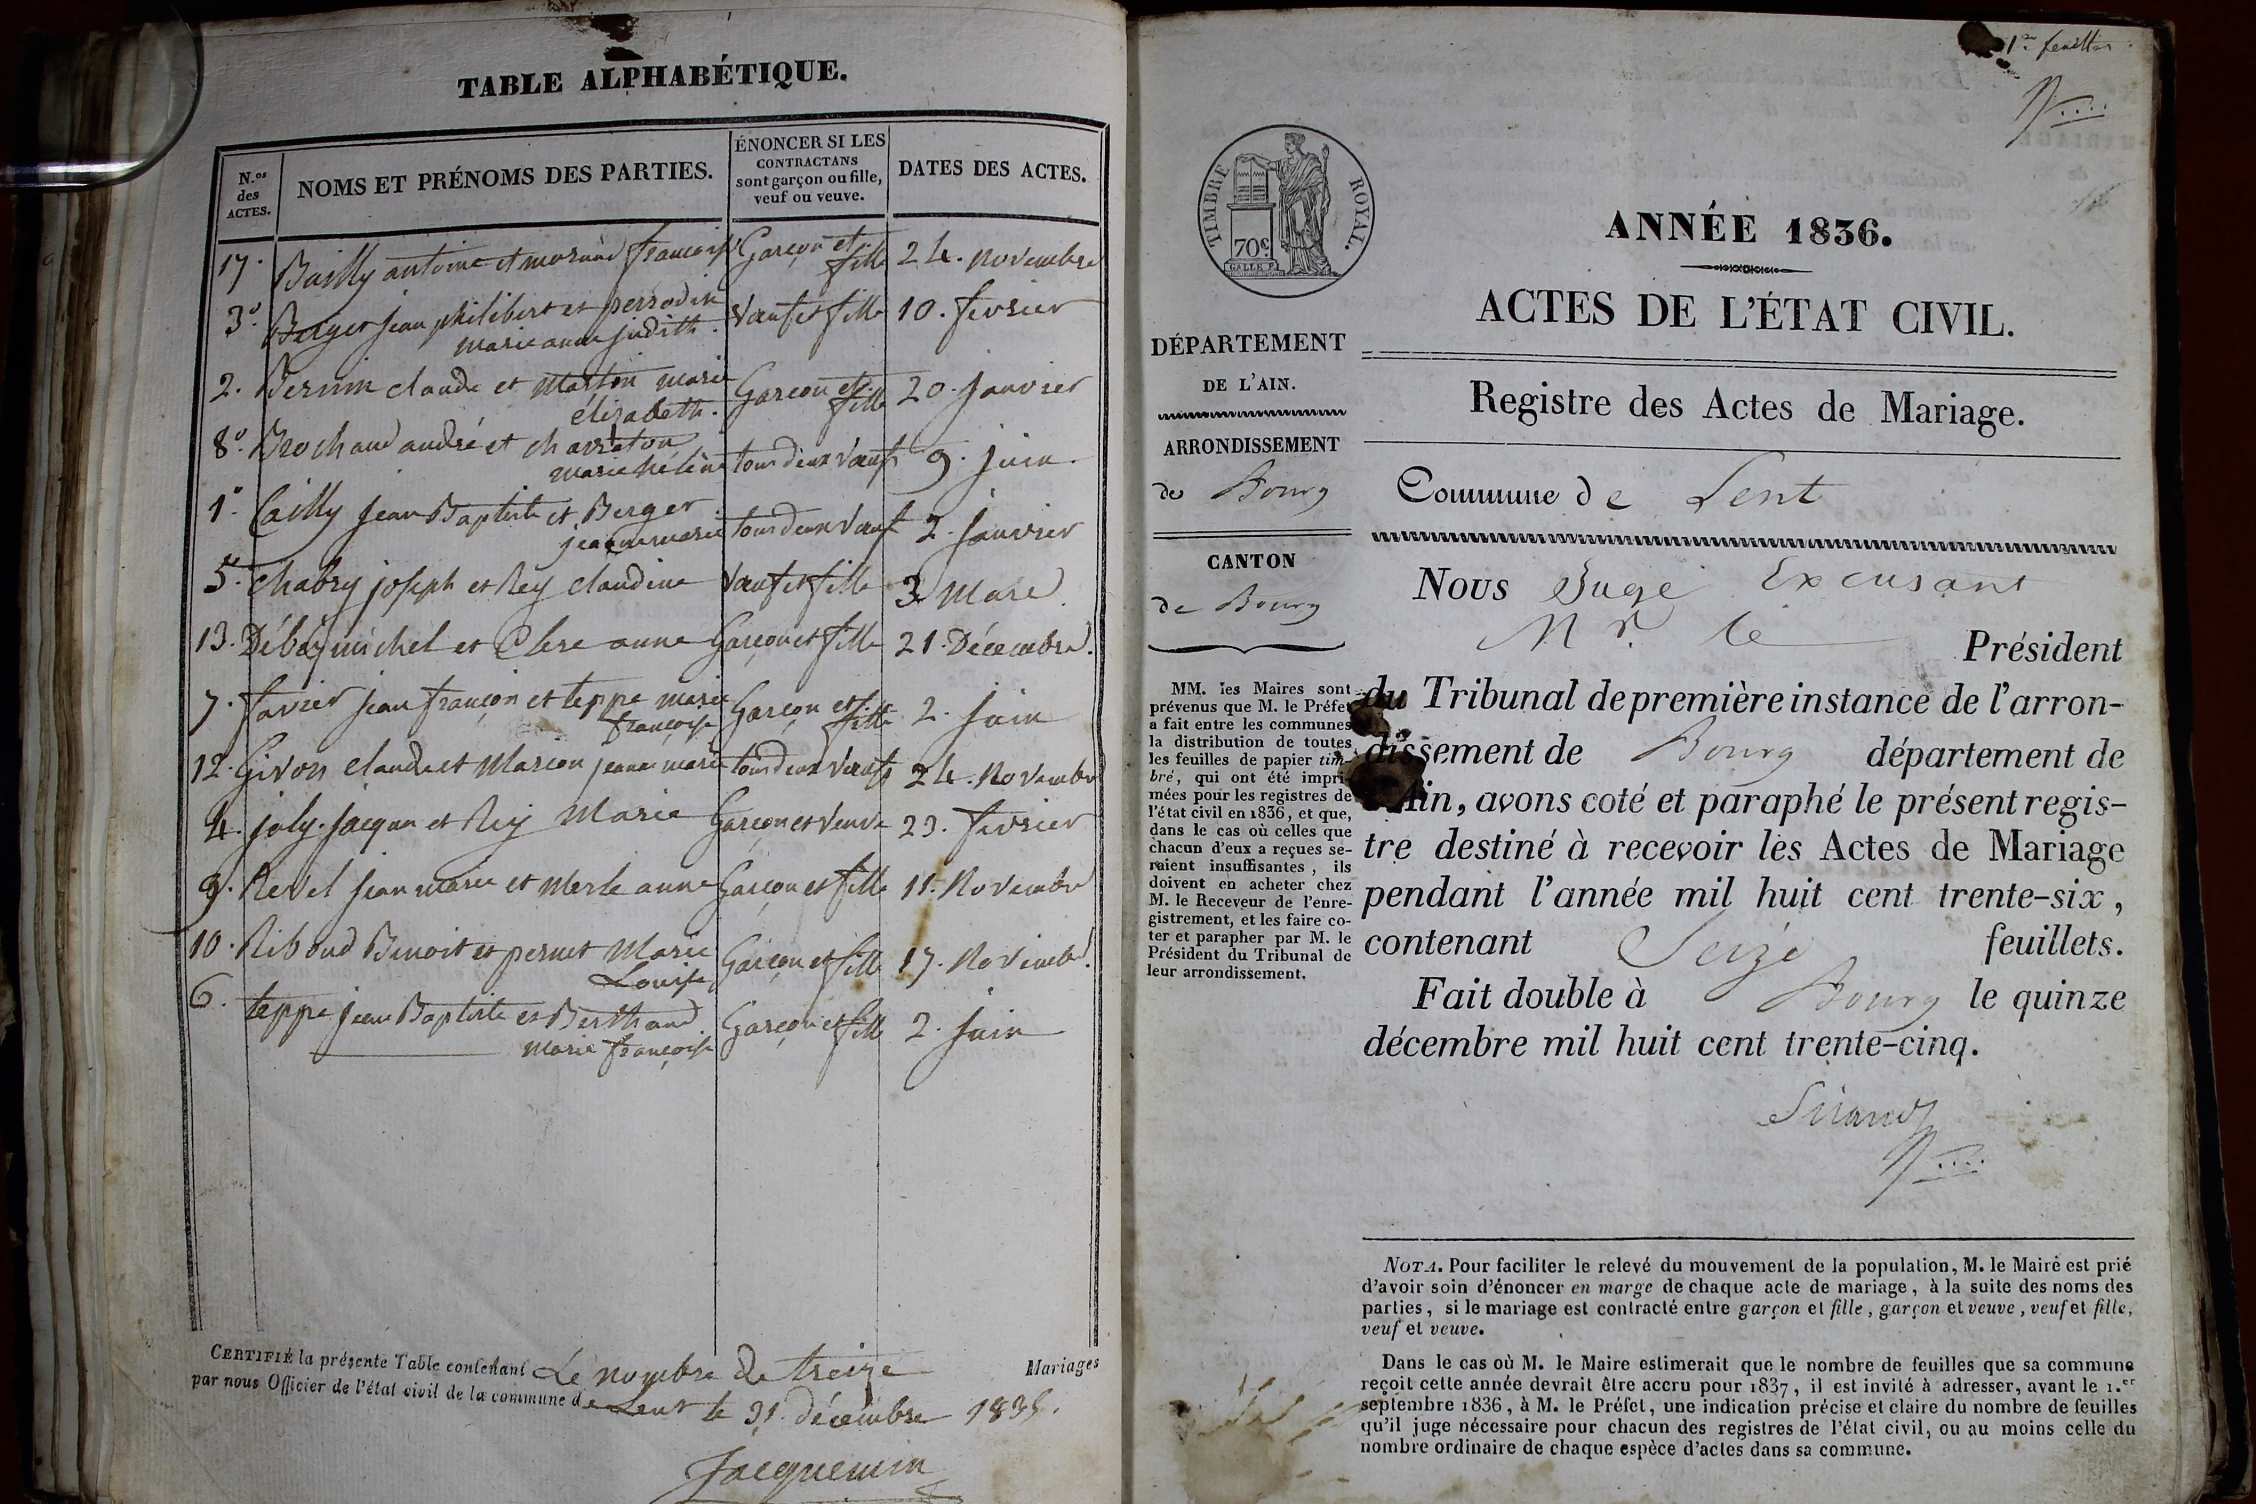 TABLE ALPHABÉTIQUE.
N.os des ACTES.
NOMS ET PRÉNOMS DES PARTIES.
ÉNONCER SI LES
CONTRACTANS
sont garçon ou fille,
veuf ou veuve.
DATES DES ACTES.
17. Bailly antoine et françoise Garçon et fille 24. Novembre
3. Berger jean philibert et perrodin
marie anne judith. Vœuf et fille 10. fevrier
2. claude et marie
élizabeth. Garçon et fille 20. janvier
8. Brochand andré et charreton
marie hélène tous deux Vœufs 9. juin.
1. Cailly jean Baptiste et Berger
jeanne marie tous deux Vœuf 2. janvier
5. Chabry joseph et Rey claudine Vœuf et fille 3. Mars
13. Débey michel et Clere anne Garçon et fille 21. Décembre.
7. favier jean françois et teppe marie
françoise Garçon et fille 2. juin
12. Givon claude et Marion jeanne marie tous deux Vœufs 24. Novembre
4. joly. jacques et Rey Marie Garçon et Veuve 23. fevrier
9. Revel jean marie et Merle anne Garçon et fille 11. Novembre
10. Riboud Benoit et pernet Marie
Louise Garçon et fille 17. Novembre
6. teppe jean Baptiste et Berthaud
marie françoise Garçon et fille 2. juin
CERTIFIÉ la présente Table contenant Le nombre de treize Mariages
par nous Officier de l'état civil de la commune de Lent le 31. décembre 1835.
Jacquemin
1er feuillet
TIMBRE ROYAL.
70c.
ANNÉE 1836.
ACTES DE L'ÉTAT CIVIL.
Registre des Actes de Mariage.
DÉPARTEMENT
DE L'AIN.
ARRONDISSEMENT
de Bourg
CANTON
de Bourg
MM. les Maires sont
prévenus que M. le Préfet
a fait entre les communes
la distribution de toutes
les feuilles de papier tim-
bré, qui ont été impri-
mées pour les registres de
l'état civil en 1836, et que,
dans le cas où celles que
chacun d'eux a reçues se-
raient insuffisantes, ils
doivent en acheter chez
M. le Receveur de l'enre-
gistrement, et les faire co-
ter et parapher par M. le
Président du Tribunal de
leur arrondissement.
Commune de Lent
Nous Juge Excusant
Mr. le Président
du Tribunal de première instance de l'arron-
dissement de Bourg département de
l'Ain, avons coté et paraphé le présent regis-
tre destiné à recevoir les Actes de Mariage
pendant l'année mil huit cent trente-six,
contenant Seize feuillets.
Fait double à Bourg le quinze
décembre mil huit cent trente-cinq.
Sirand
NOTA. Pour faciliter le relevé du mouvement de la population, M. le Maire est prié
d'avoir soin d'énoncer en marge de chaque acte de mariage, à la suite des noms des
parties, si le mariage est contracté entre garçon et fille, garçon et veuve, veuf et fille,
veuf et veuve.
Dans le cas où M. le Maire estimerait que le nombre de feuilles que sa commune
reçoit cette année devrait être accru pour 1837, il est invité à adresser, avant le 1.er
septembre 1836, à M. le Préfet, une indication précise et claire du nombre de feuilles
qu'il juge nécessaire pour chacun des registres de l'état civil, ou au moins celle du
nombre ordinaire de chaque espèce d'actes dans sa commune.